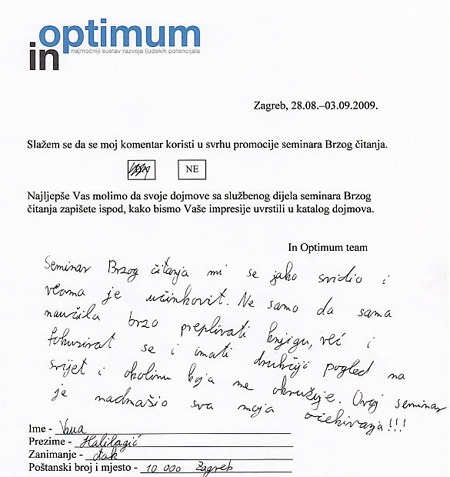 in optimum
najmoćniji sustav razvoja ljudskih potencijala
Zagreb, 28.08.–03.09.2009.
Slažem se da se moj komentar koristi u svrhu promocije seminara Brzog čitanja.
NE
Najljepše Vas molimo da svoje dojmove sa službenog dijela seminara Brzog
čitanja zapišete ispod, kako bismo Vaše impresije uvrstili u katalog dojmova.
In Optimum team
Seminar Brzog čitanja mi se jako svidio i
veoma je učinkovit. Ne samo da sama
naučila brzo preplivati knjigu, već i
fokusirat se i imati drukčiji pogled na
svijet i okolinu koja me okružuje. Ovaj seminar
je nadmašio sva moja očekivanja!!!
Ime -
Prezime - Halilagić
Zanimanje - đak
Poštanski broj i mjesto - 10 000 Zagreb